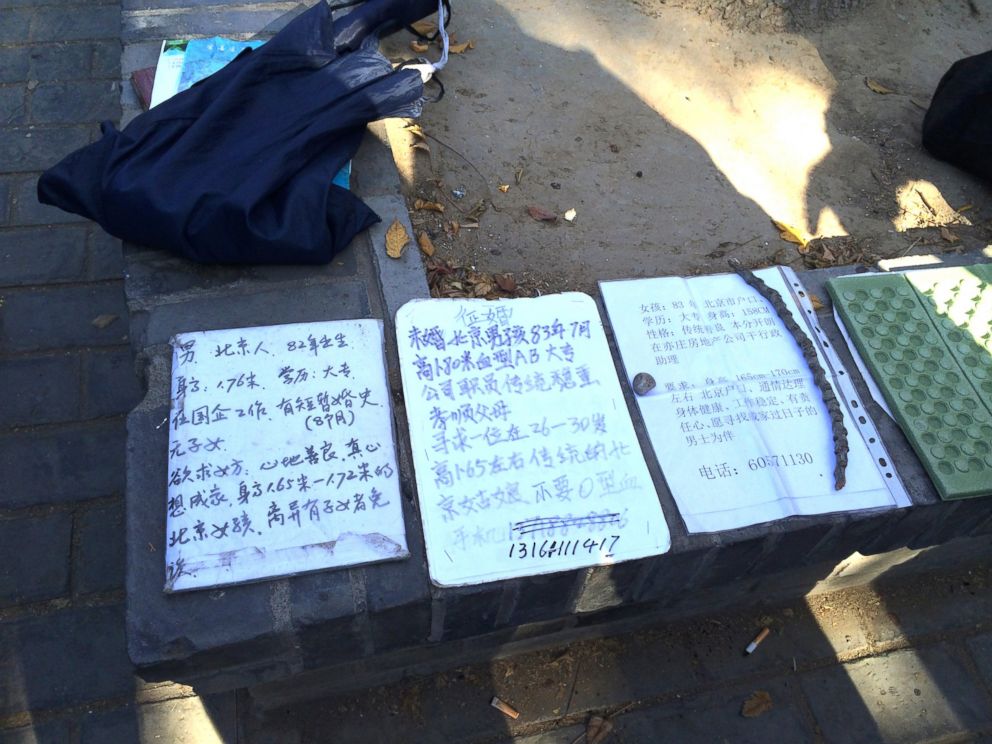 男 北京人，82年出生
身高：1.76米. 学历：大专
在国企工作，有短暂婚史，
(8个月)
无子女.
欲求女方：心地善良，真心
想成家，身高1.65米—1.72米的
北京女孩，离异有子女者免
谈.
征婚
未婚 北京男孩 83年7月
高1·80米血型AB 大专
公司职员 传统稳重
孝顺父母
寻求一位在26—30岁
高1·65左右传统的北
京女姑娘 不要O型血
手机
女孩：83 年 北京市户口，
学历：大专 身高：158CM
性格：传统 善良 本分开朗
在亦庄房地产公司干行政
助理
要求：身高 165cm-170cm
左右 北京户口、通情达理
身体健康、工作稳定、有责
任心、愿寻找成家过日子的
男士为伴
电话：